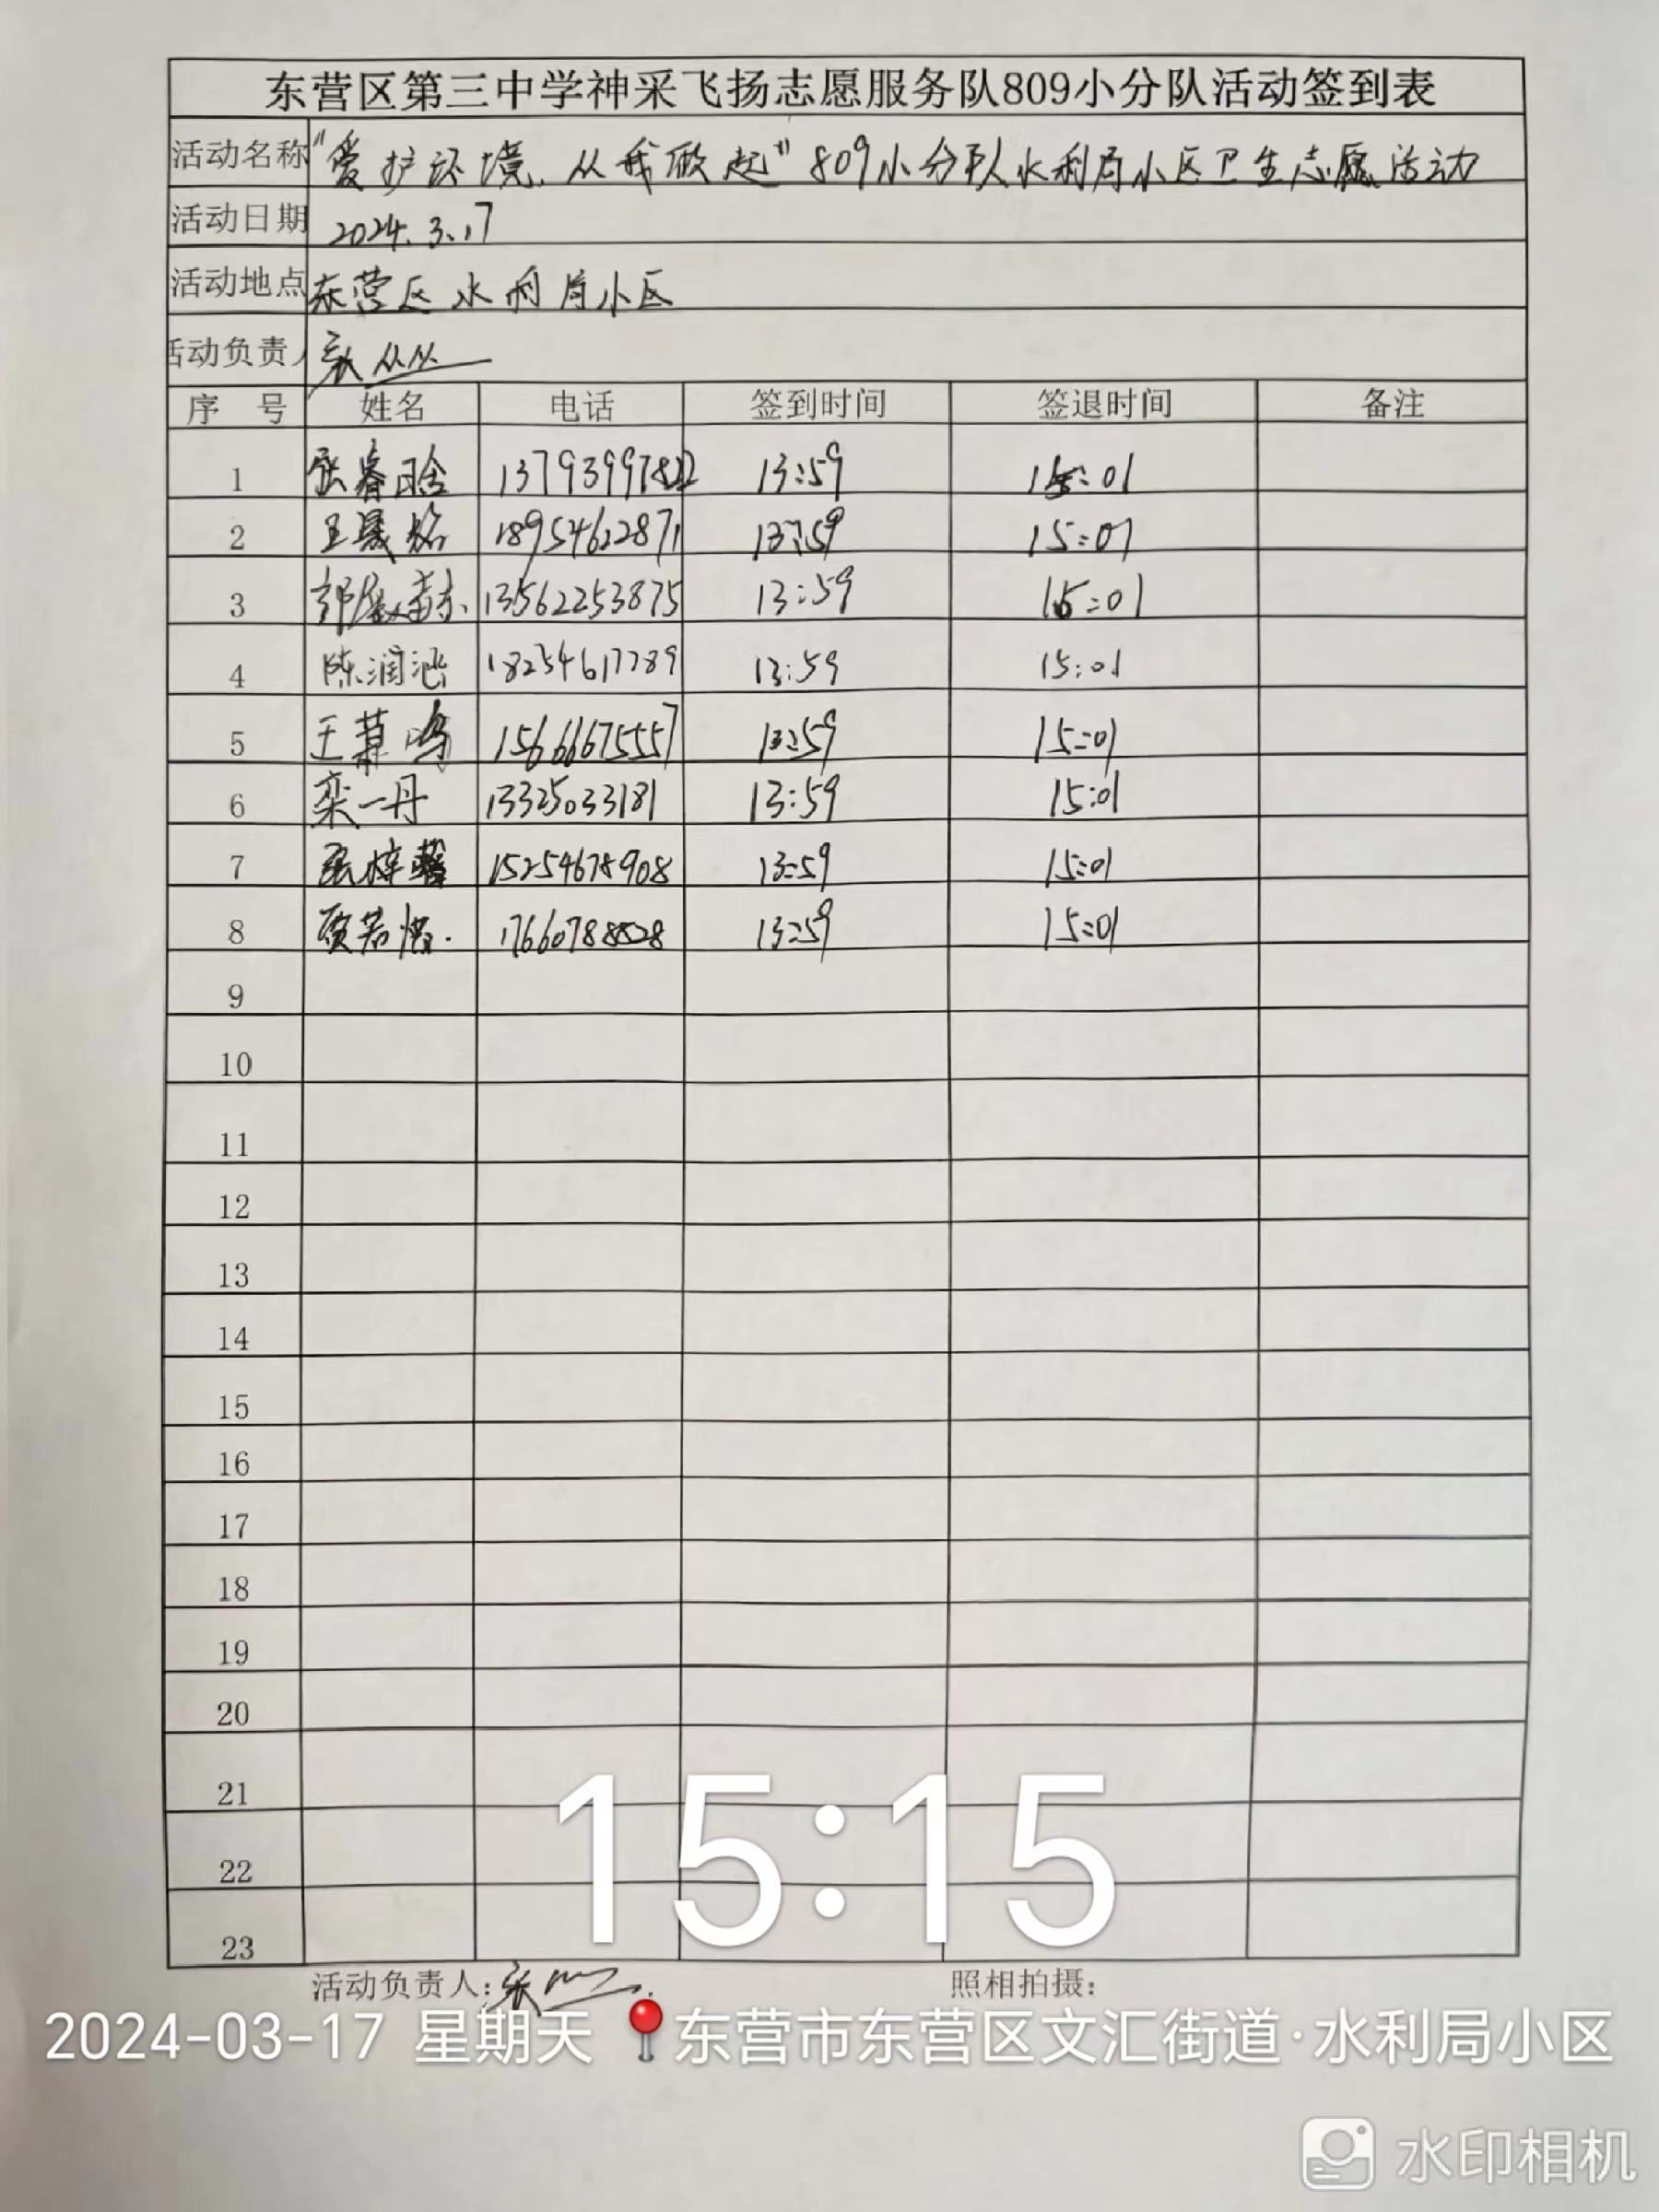 东营区第三中学神采飞扬志愿服务队809小分队活动签到表
活动名称 "爱护环境，从我做起"809小分队水利局小区卫生志愿活动
活动日期 2024.3.17
活动地点 东营区水利局小区
活动负责人 张丛丛
序 号 姓名 电话 签到时间 签退时间 备注
1 张睿晗 13:59 15:01
2 王晟铭 18954622871 13:59 15:01
3 郭 13562253875 13:59 15:01
4 陈润涵 18254617789 13:59 15:01
5 王慕鸣 15666675557 13:59 15:01
6 栾一丹 13325033181 13:59 15:01
7 张梓馨 15254678908 13:59 15:01
8 贾若 17660788528 13:59 15:01
9
10
11
12
13
14
15
16
17
18
19
20
21
22
23
15:15
活动负责人：张 照相拍摄：
2024-03-17 星期天 东营市东营区文汇街道·水利局小区
水印相机